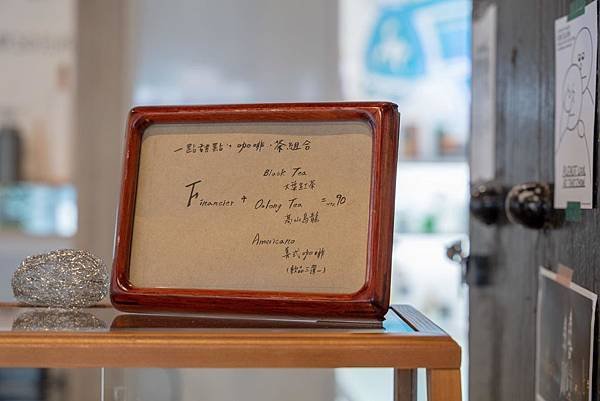 一點甜點、咖啡、茶組合
Black Tea
大葉紅茶
Financier + Oolong Tea = NT. 90
高山烏龍
Americano
美式咖啡
(飲品三選一)